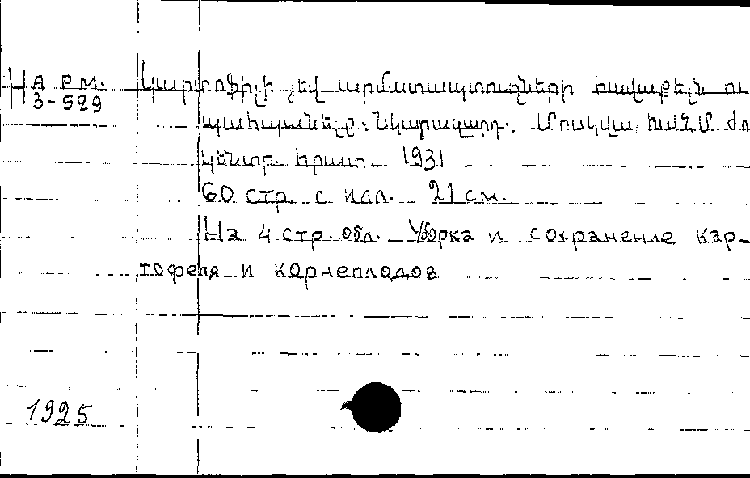 На рм. Կարտոֆիլի յեվ արմատապտուղների հավաքելն ու
3-529
պահպանելը. Նկարազարդ. Մոսկվա, ԽՍՀՄ ժո
կենտր. հրատ. 1931
60 стр. с илл. 21 см.
На 4 стр. обл. Уборка и сохранение кар-
тофеля и корнеплодов
1925